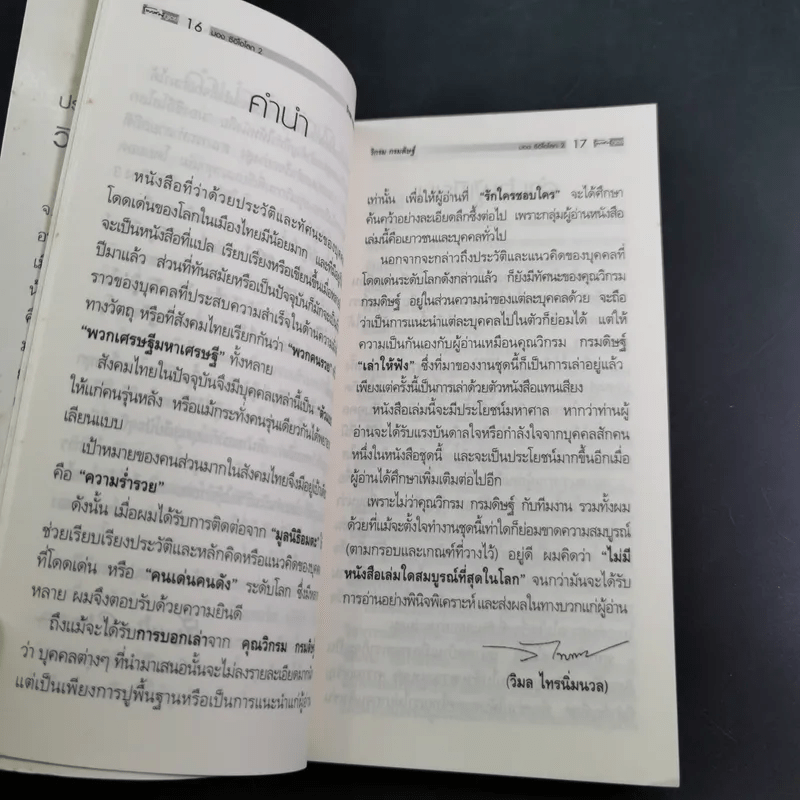 16 มอง ซีอีโอโลก 2
คำนำ
หนังสือที่ว่าด้วยประวัติและทัศนะของบุคคล
โดดเด่นของโลกในเมืองไทยมีน้อยมาก และที่มีอยู่
จะเป็นหนังสือที่แปล เรียบเรียงหรือเขียนขึ้นเมื่อ
ปีมาแล้ว ส่วนที่ทันสมัยหรือเป็นปัจจุบันก็มักจะเป็น
ราวของบุคคลที่ประสบความสำเร็จในด้านความ
ทางวัตถุ หรือที่สังคมไทยเรียกกันว่า "พวกคนรวย"
"พวกเศรษฐีมหาเศรษฐี" ทั้งหลาย
สังคมไทยในปัจจุบันจึงมีบุคคลเหล่านี้เป็น
ให้แก่คนรุ่นหลัง หรือแม้กระทั่งคนรุ่นเดียวกันได้
เลียนแบบ
เป้าหมายของคนส่วนมากในสังคมไทยจึงมีอยู่
คือ "ความร่ำรวย"
ดังนั้น เมื่อผมได้รับการติดต่อจาก "มูลนิธิอมตะ"
ช่วยเรียบเรียงประวัติและหลักคิดหรือแนวคิดของบุคคล
ที่โดดเด่น หรือ "คนเด่นคนดัง" ระดับโลก
หลาย ผมจึงตอบรับด้วยความยินดี
ถึงแม้จะได้รับการบอกเล่าจาก คุณวิกรม กรมดิษฐ์
ว่า บุคคลต่างๆ ที่นำมาเสนอนั้นจะไม่ลงรายละเอียด
แต่เป็นเพียงการปูพื้นฐานหรือเป็นการแนะนำแก่ผู้อ่าน
วิกรม กรมดิษฐ์ มอง ซีอีโอโลก 2 17
เท่านั้น เพื่อให้ผู้อ่านที่ "รักใครชอบใคร" จะได้ศึกษา
ค้นคว้าอย่างละเอียดลึกซึ้งต่อไป เพราะกลุ่มผู้อ่านหนังสือ
เล่มนี้คือเยาวชนและบุคคลทั่วไป
นอกจากจะกล่าวถึงประวัติและแนวคิดของบุคคลที่
โดดเด่นระดับโลกดังกล่าวแล้ว ก็ยังมีทัศนะของคุณวิกรม
กรมดิษฐ์ อยู่ในส่วนความนำของแต่ละบุคคลด้วย จะถือ
ว่าเป็นการแนะนำแต่ละบุคคลไปในตัวก็ย่อมได้ แต่ให้
ความเป็นกันเองกับผู้อ่านเหมือนคุณวิกรม กรมดิษฐ์
"เล่าให้ฟัง" ซึ่งที่มาของงานชุดนี้ก็เป็นการเล่าอยู่แล้ว
เพียงแต่ครั้งนี้เป็นการเล่าด้วยตัวหนังสือแทนเสียง
หนังสือเล่มนี้จะมีประโยชน์มหาศาล หากว่าท่านผู้
อ่านจะได้รับแรงบันดาลใจหรือกำลังใจจากบุคคลสักคน
หนึ่งในหนังสือชุดนี้ และจะเป็นประโยชน์มากขึ้นอีกเมื่อ
ผู้อ่านได้ศึกษาเพิ่มเติมต่อไปอีก
เพราะไม่ว่าคุณวิกรม กรมดิษฐ์ กับทีมงาน รวมทั้งผม
ด้วยที่แม้จะตั้งใจทำงานชุดนี้เท่าใดก็ย่อมขาดความสมบูรณ์
(ตามกรอบและเกณฑ์ที่วางไว้) อยู่ดี ผมคิดว่า "ไม่มี
หนังสือเล่มใดสมบูรณ์ที่สุดในโลก" จนกว่ามันจะได้รับ
การอ่านอย่างพินิจพิเคราะห์ และส่งผลในทางบวกแก่ผู้อ่าน
(วิมล ไทรนิ่มนวล)